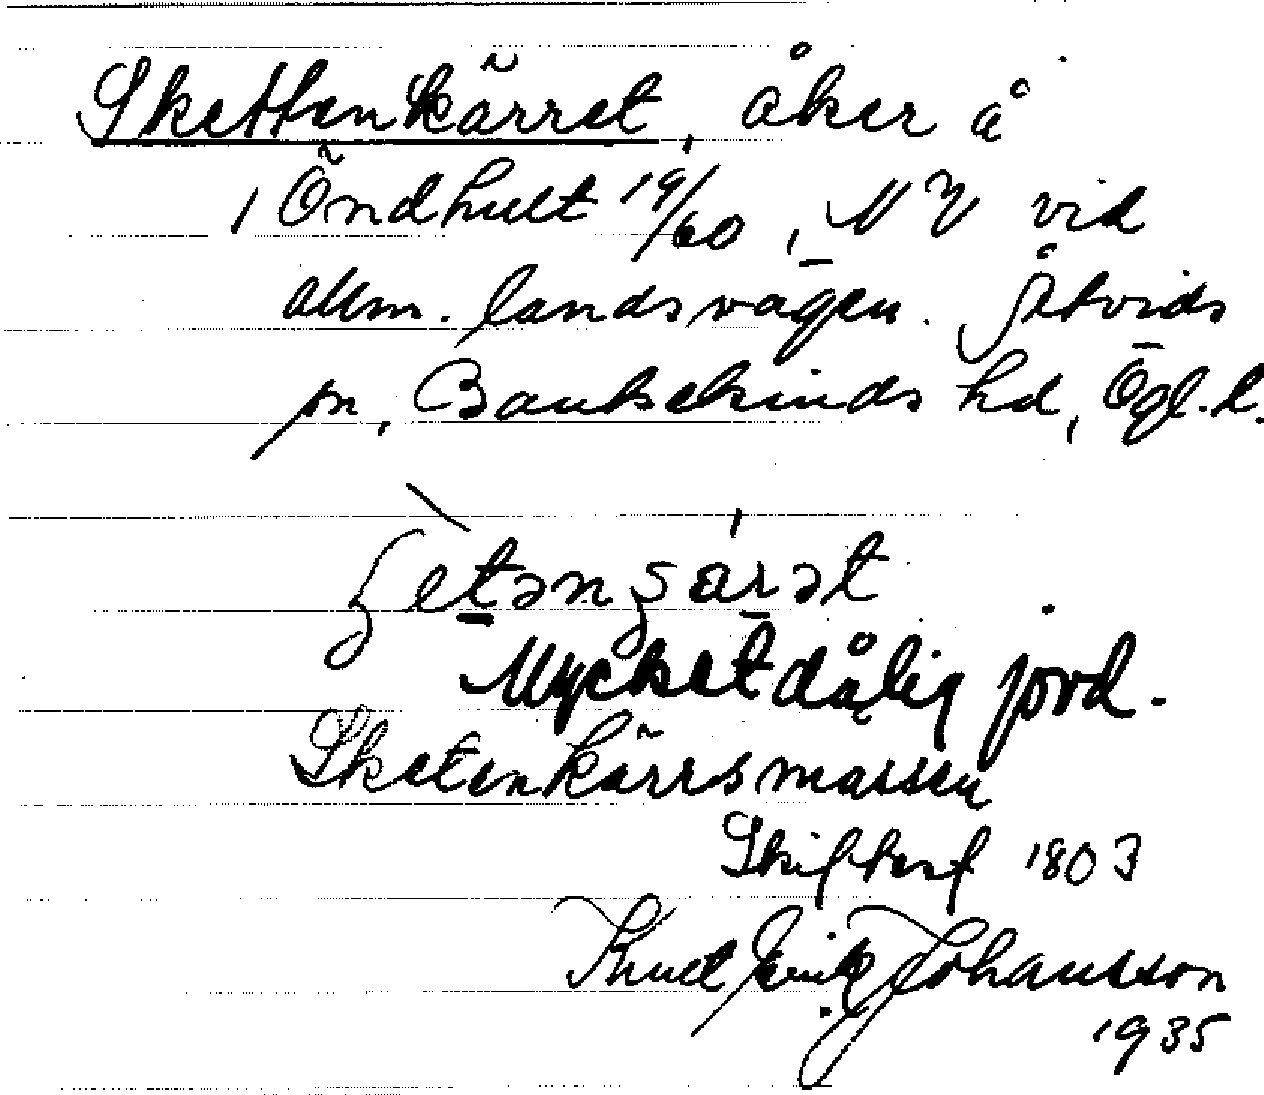 Skettenkärret, åker å
Öndhult 19/60, NV vid
allm. landsvägen. Åtvids
sn, Bankekinds hd, Ögl. l.
Mycket dålig jord.
Sketenkärrsmassen
Skiftesf 1803
Knut Erik Johansson
1935